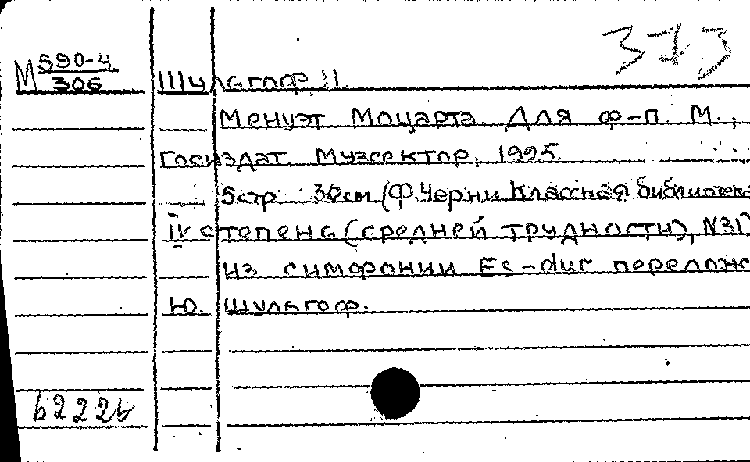 373
М 590-4
306
Шульгоф,
Менуэт Моцарта. Для ф-п. М.,
Госиздат. Музсектор, 1925
5 стр 30см (Ф. Черни Классная библиотека
IV степень (средней трудности), N31)
из симфонии Es-dur перелож
Ю. Шульгоф.
6222б